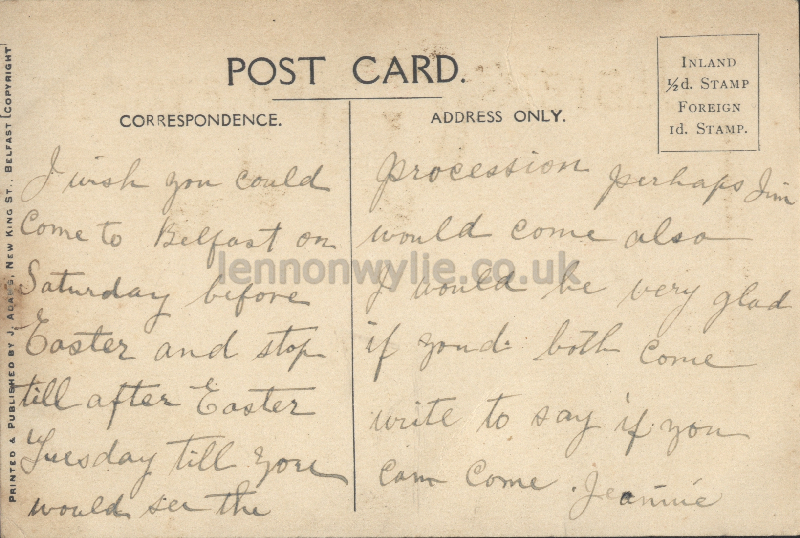 POST CARD.
CORRESPONDENCE.
ADDRESS ONLY.
INLAND
½d. STAMP
FOREIGN
1d. STAMP.
PRINTED & PUBLISHED BY J. ADAMS, NEW KING ST., BELFAST [COPYRIGHT
I wish you could
Come to Belfast on
Saturday before
Easter and stop
till after Easter
Tuesday till you
would see the
procession perhaps Jim
would come also
I would be very glad
if youd both come
write to say if you
can come. Jeannie
lennonwylie.co.uk